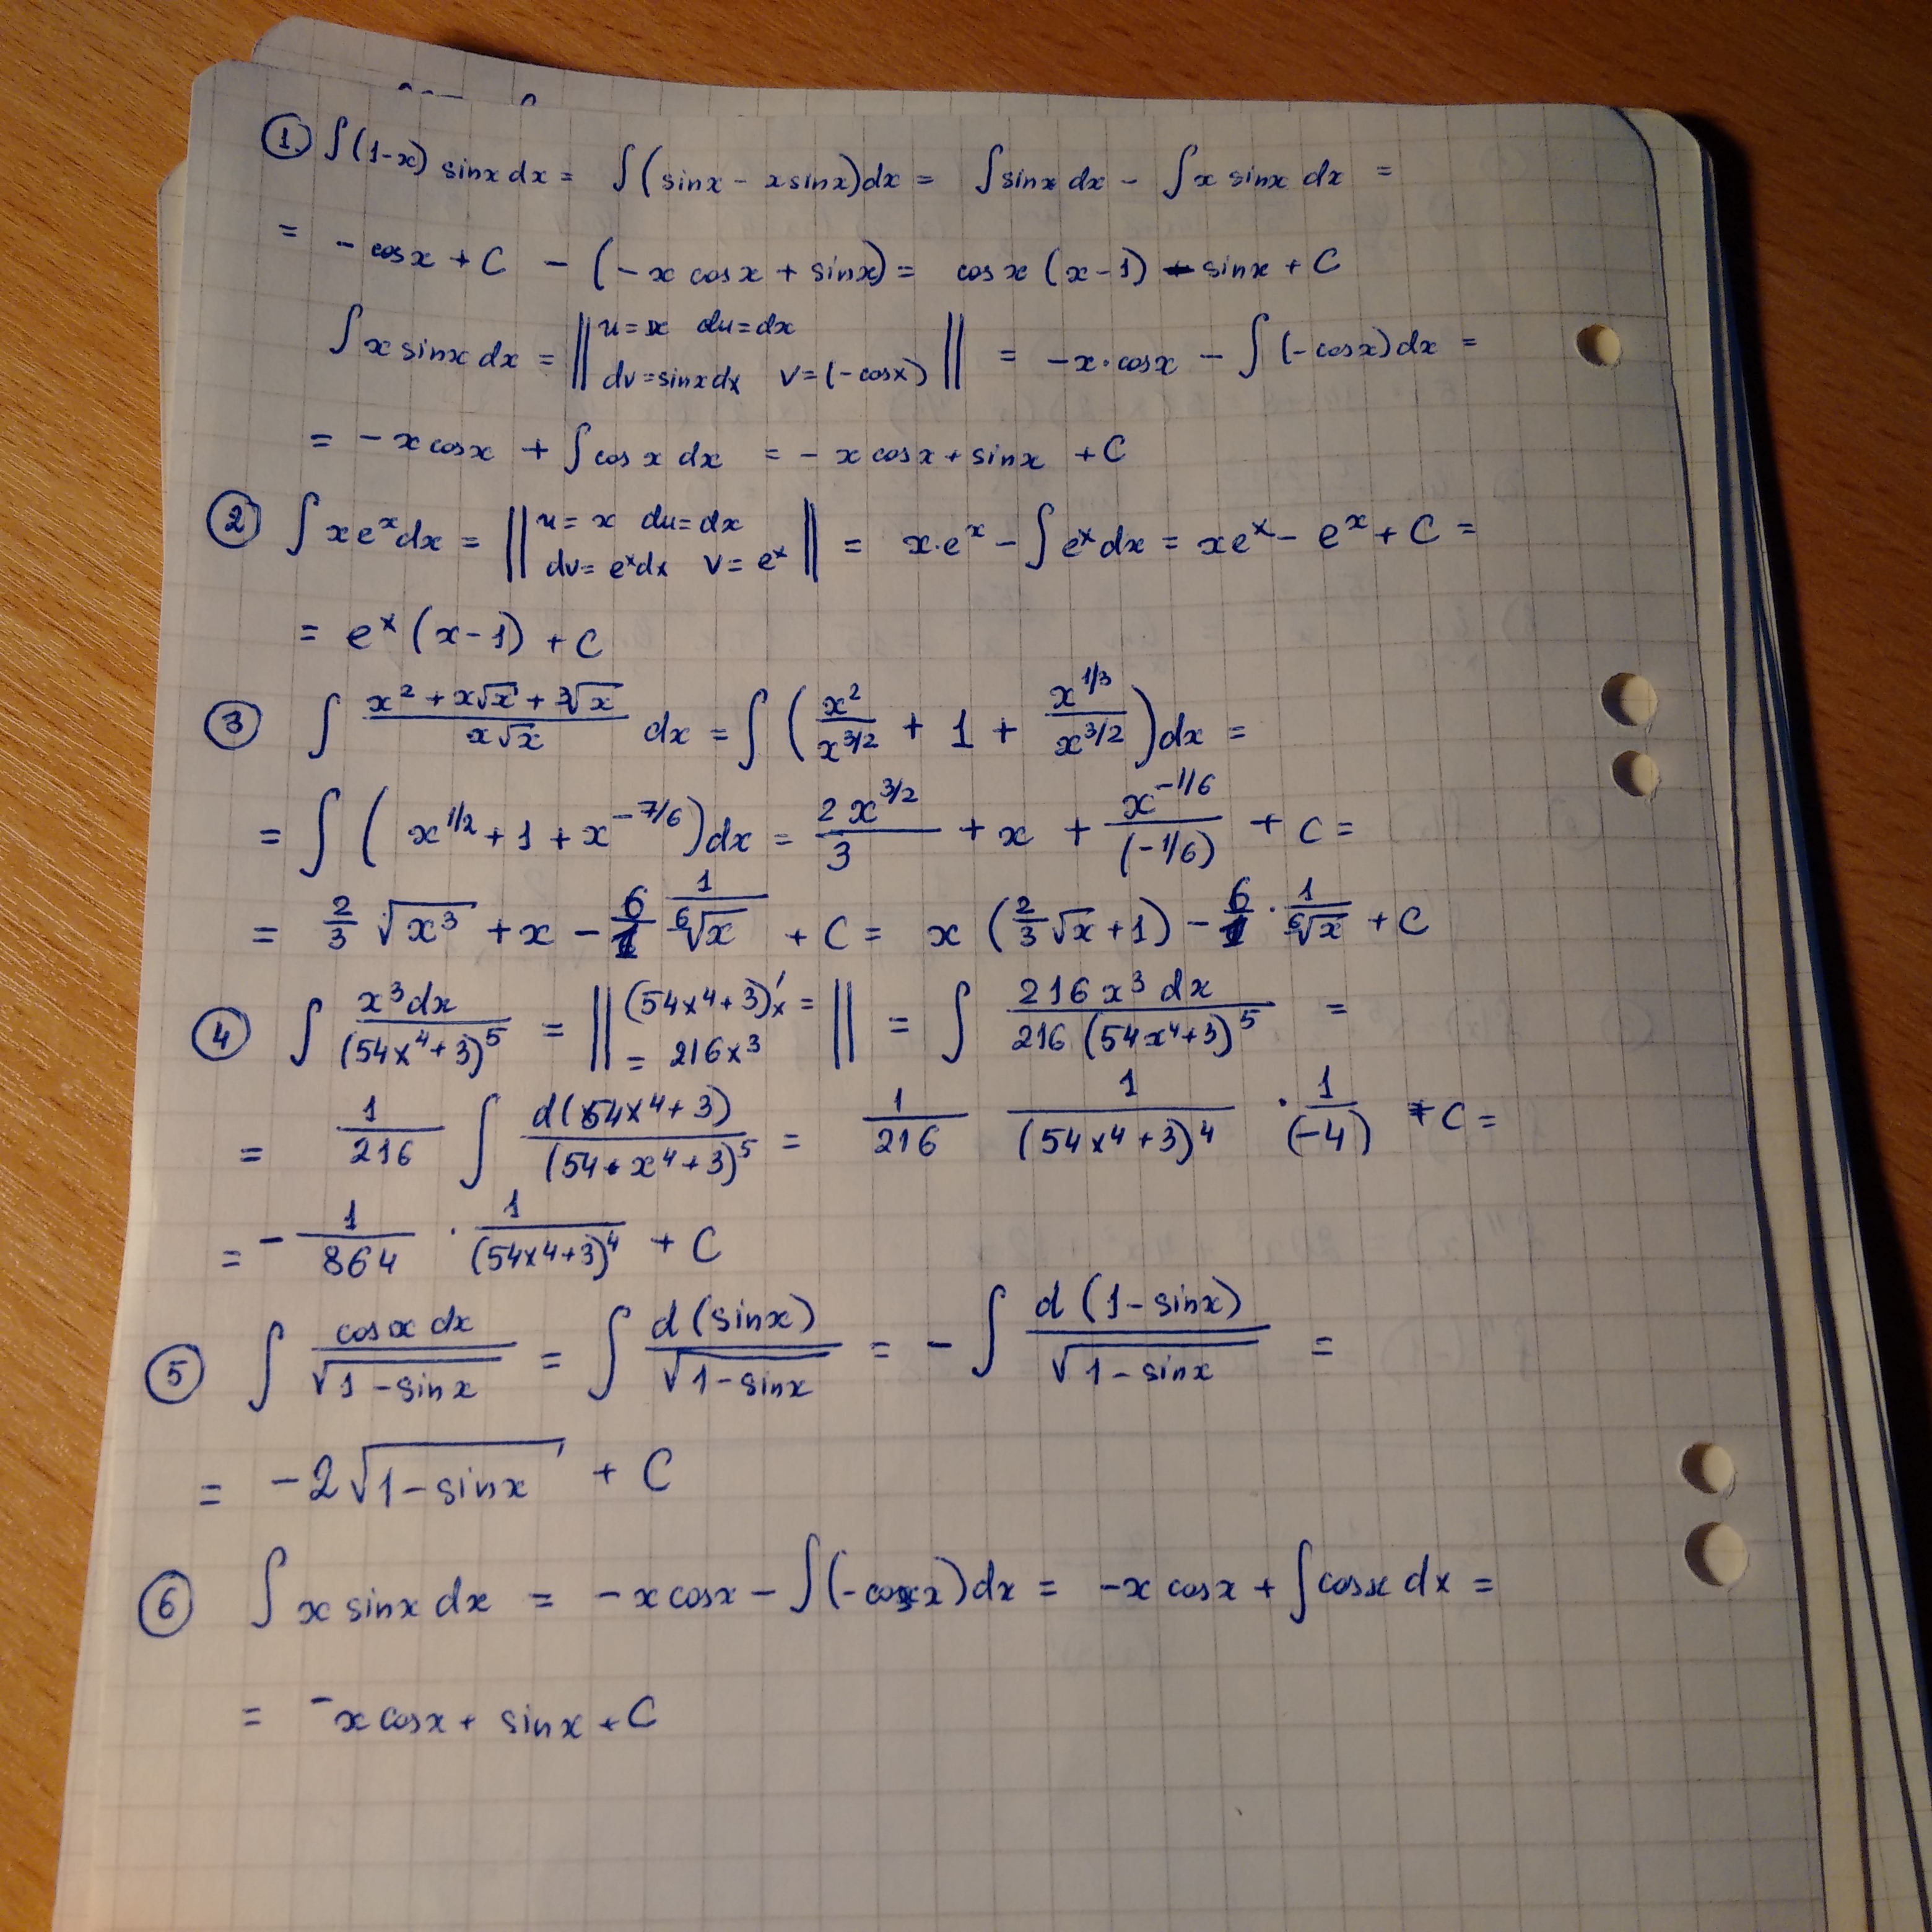 ① ∫(1-x) sinx dx = ∫(sinx - x sinx)dx = ∫sinx dx - ∫x sinx dx =
= - cosx + C - (-x cosx + sinx) = cosx (x-1) - sinx + C
∫x sinx dx = || u=x du=dx dv=sinxdx v=(-cosx) || = -x·cosx - ∫(-cosx)dx =
= -x cosx + ∫cosx dx = -x cosx + sinx + C
② ∫xeˣdx = || u=x du=dx dv=eˣdx v=eˣ || = x·eˣ - ∫eˣdx = xeˣ - eˣ + C =
= eˣ(x-1) + C
③ ∫ (x² + x√x + ∛x)/(x√x) dx = ∫(x²/x^(3/2) + 1 + x^(1/3)/x^(3/2))dx =
= ∫(x^(1/2) + 1 + x^(-7/6))dx = 2x^(3/2)/3 + x + x^(-1/6)/(-1/6) + C =
= 2/3 √(x³) + x - 6/1 1/⁶√x + C = x(2/3 √x + 1) - 6/1 · 1/⁶√x + C
④ ∫ x³dx/(54x⁴+3)⁵ = || (54x⁴+3)'ₓ = = 216x³ || = ∫ 216x³dx/(216(54x⁴+3)⁵) =
= 1/216 ∫ d(54x⁴+3)/(54·x⁴+3)⁵ = 1/216 1/(54x⁴+3)⁴ · 1/(-4) + C =
= -1/864 · 1/(54x⁴+3)⁴ + C
⑤ ∫ cosx dx/√(1-sinx) = ∫ d(sinx)/√(1-sinx) = -∫ d(1-sinx)/√(1-sinx) =
= -2√(1-sinx) + C
⑥ ∫x sinx dx = -x cosx - ∫(-cosx)dx = -x cosx + ∫cosx dx =
= -x cosx + sinx + C